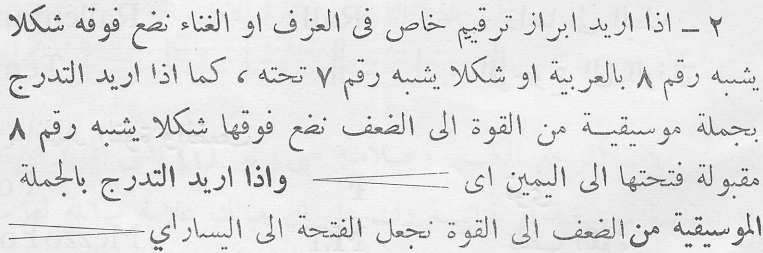 ٢ ــ اذا اريد ابراز ترقيم خاص فى العزف او الغناء نضع فوقه شكلا
يشبه رقم ٨ بالعربية او شكلا يشبه رقم ٧ تحته ، كما اذا اريد التدرج
بجملة موسيقيــة من القوة الى الضعف نضع فوقها شكلا يشبه رقم ٨
مقبولة فتحتها الى اليمين اى واذا اريد التدرج بالجملة
الموسيقية من الضعف الى القوة نجعل الفتحة الى اليسار اي